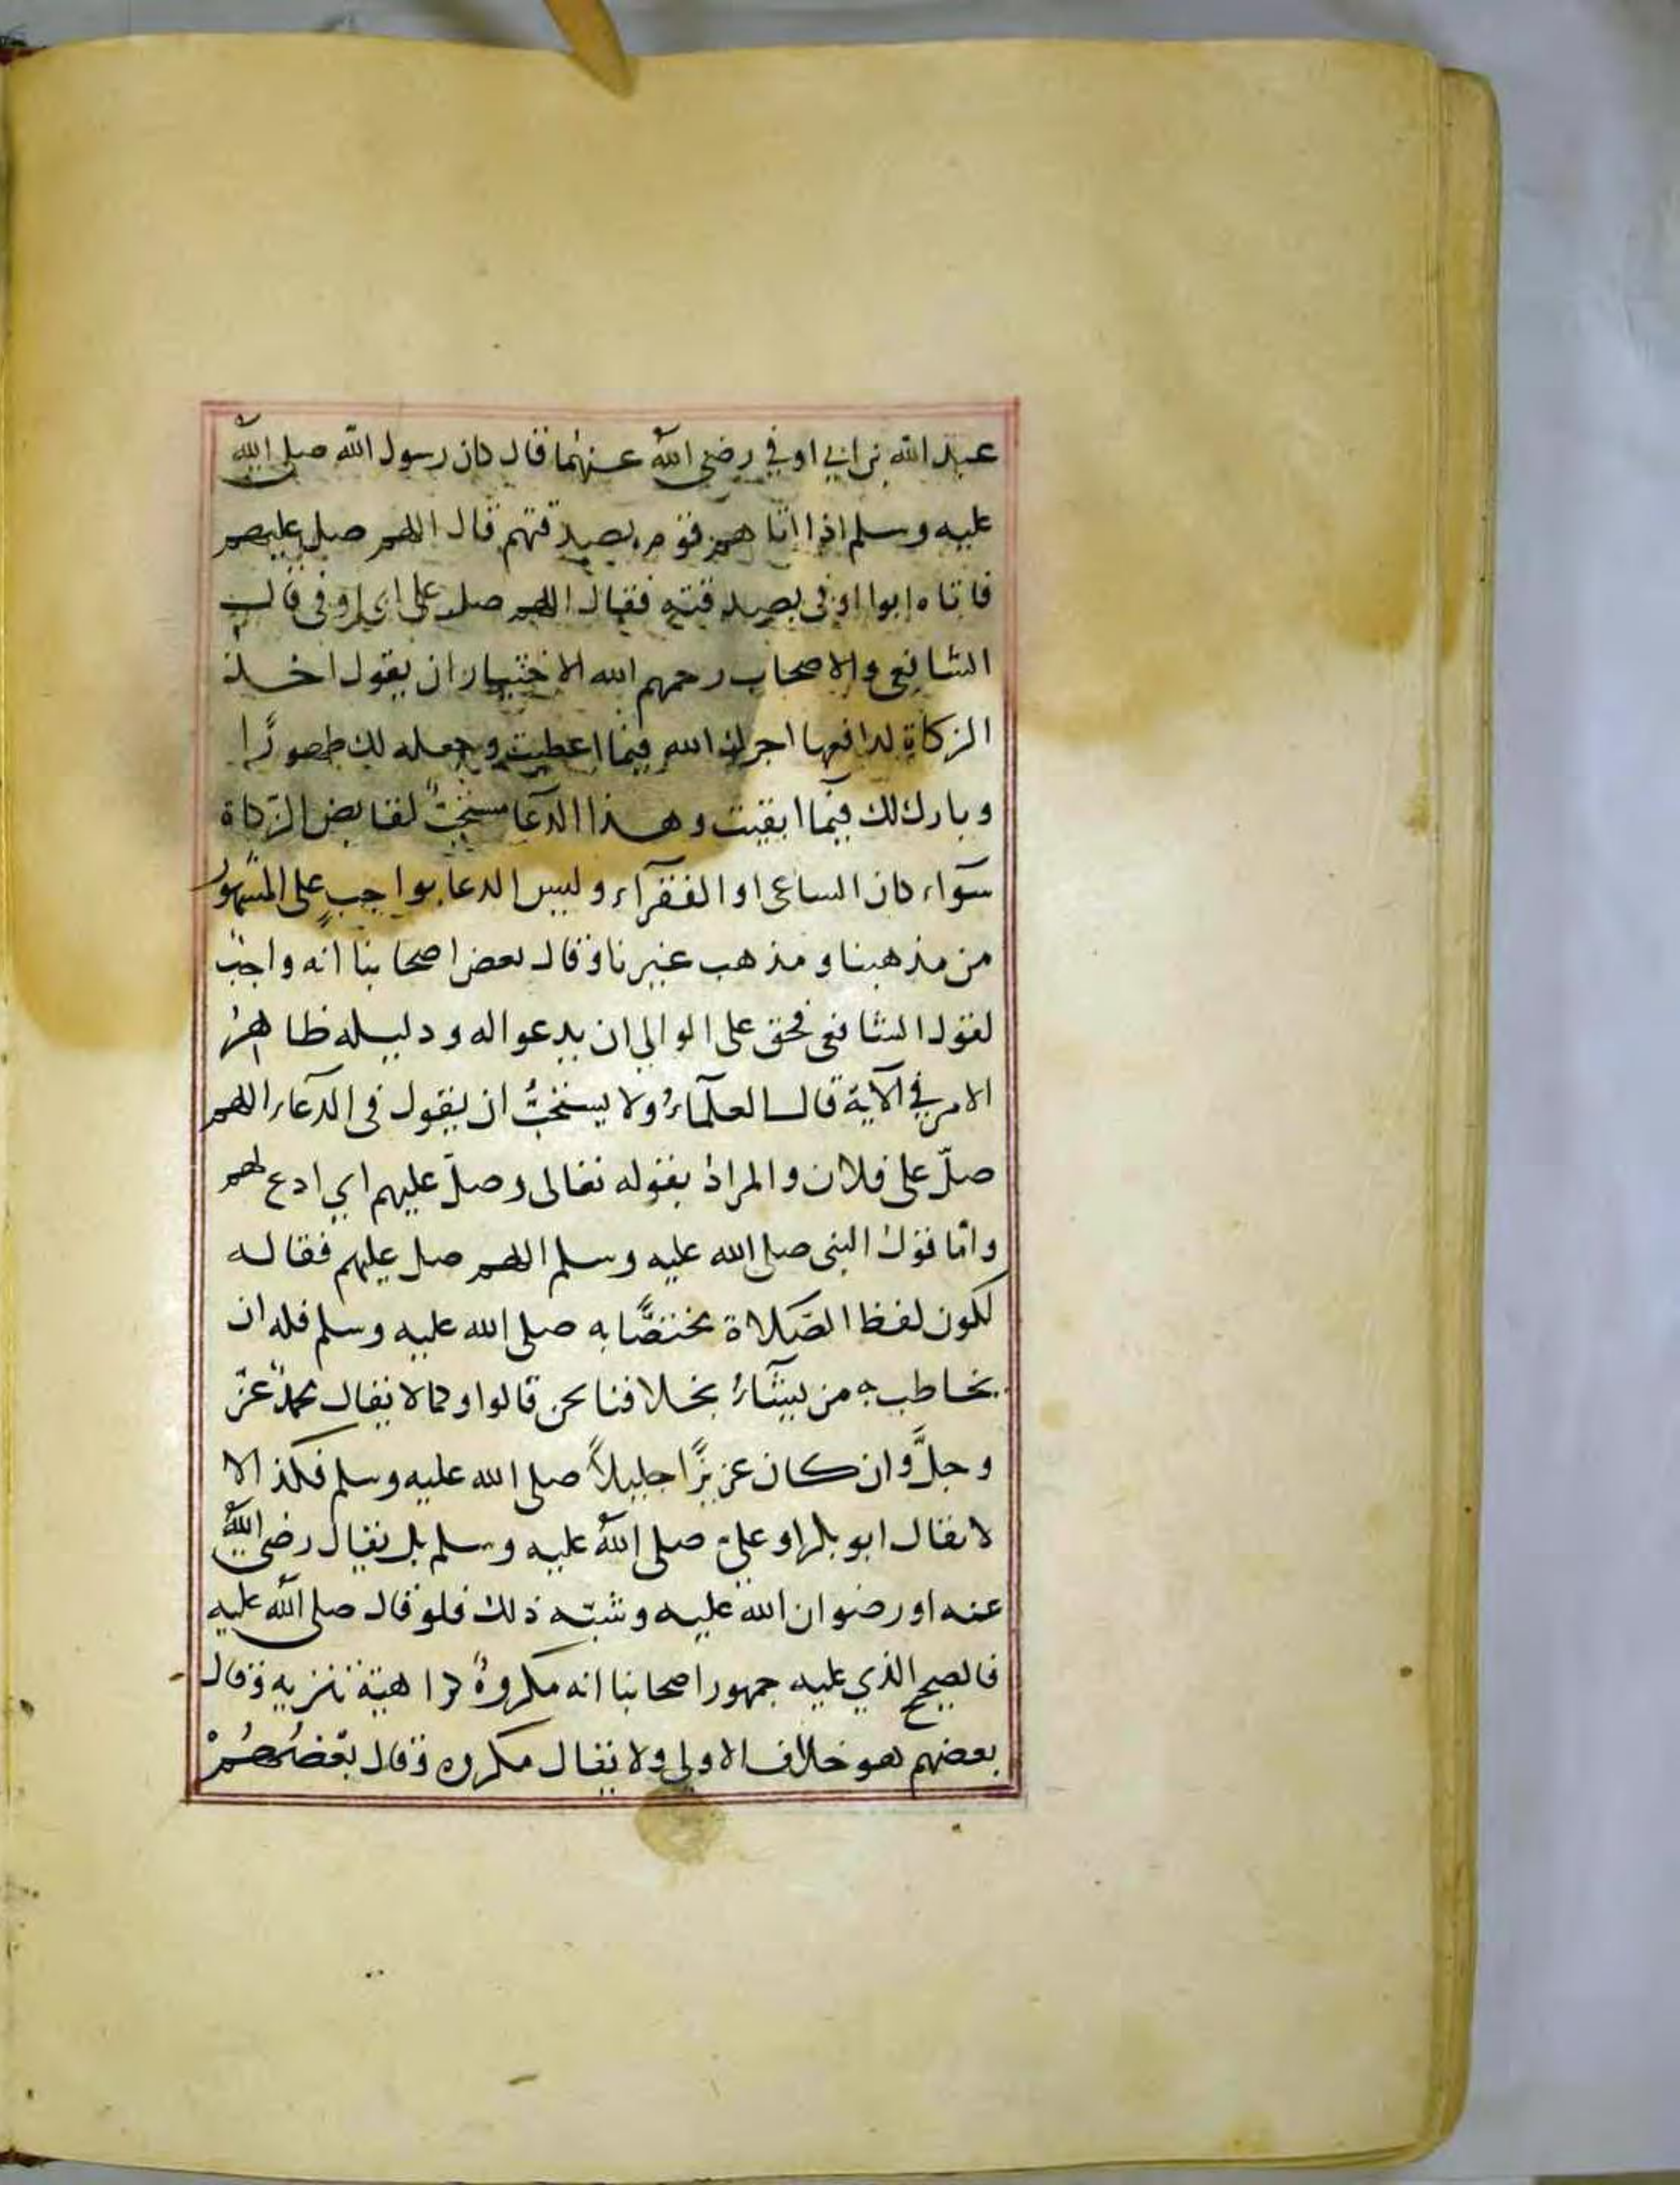 عبد الله بن ابي اوفي رضي الله عنهما قال كان رسول الله صلى الله
عليه وسلم اذا اتاهم قوم بصدقتهم قال اللهم صل عليهم
فاتاه ابوا اوفى بصدقته فقال اللهم صل على ابي اوفى قال
الشافعي والاصحاب رحمهم الله الاختيار ان يقول اخذ
الزكاة لدافعها اجرك الله فيما اعطيت وجعله لك طهورًا
وبارك لك فيما ابقيت وهذا الدعا مستحبٌ لقابض الزكاة
سوآء كان الساعى او الفقرآء وليس الدعا بواجبٍ على المشهور
من مذهبنا ومذهب غيرنا وقال بعض اصحابنا انه واجبٌ
لقول الشافعى فحق على الوالي ان يدعوا له ودليله ظاهرُ
الامر في الآية قال العلمآءُ ولا يستحبُّ ان يقول فى الدعآء اللهم
صلّ على فلان والمراد بقوله تعالى وصلّ عليهم اي ادع لهم
وامّا قول النبى صلى الله عليه وسلم اللهم صل عليهم فقاله
لكون لفظ الصّلاة مختصًّا به صلى الله عليه وسلم فله ان
يخاطب به من يشآءُ بخلافنا نحن قالوا وكما لا يقال محمدٌ عزّ
وجلَّ وان كان عزيزًا جليلاً صلى الله عليه وسلم فكذا لا
لا يقال ابو بكر او علىٌ صلى اللهُ عليه وسلم بل يقال رضى اللهُ
عنه او رضوان الله عليه وشبه ذلك فلو قال صلى الله عليه
فالصحيح الذي عليه جمهور اصحابنا انه مكروهٌ كراهية تنزيه وقال
بعضهم هو خلاف الاولى ولا يقال مكروه وقال بعضُهُمْ